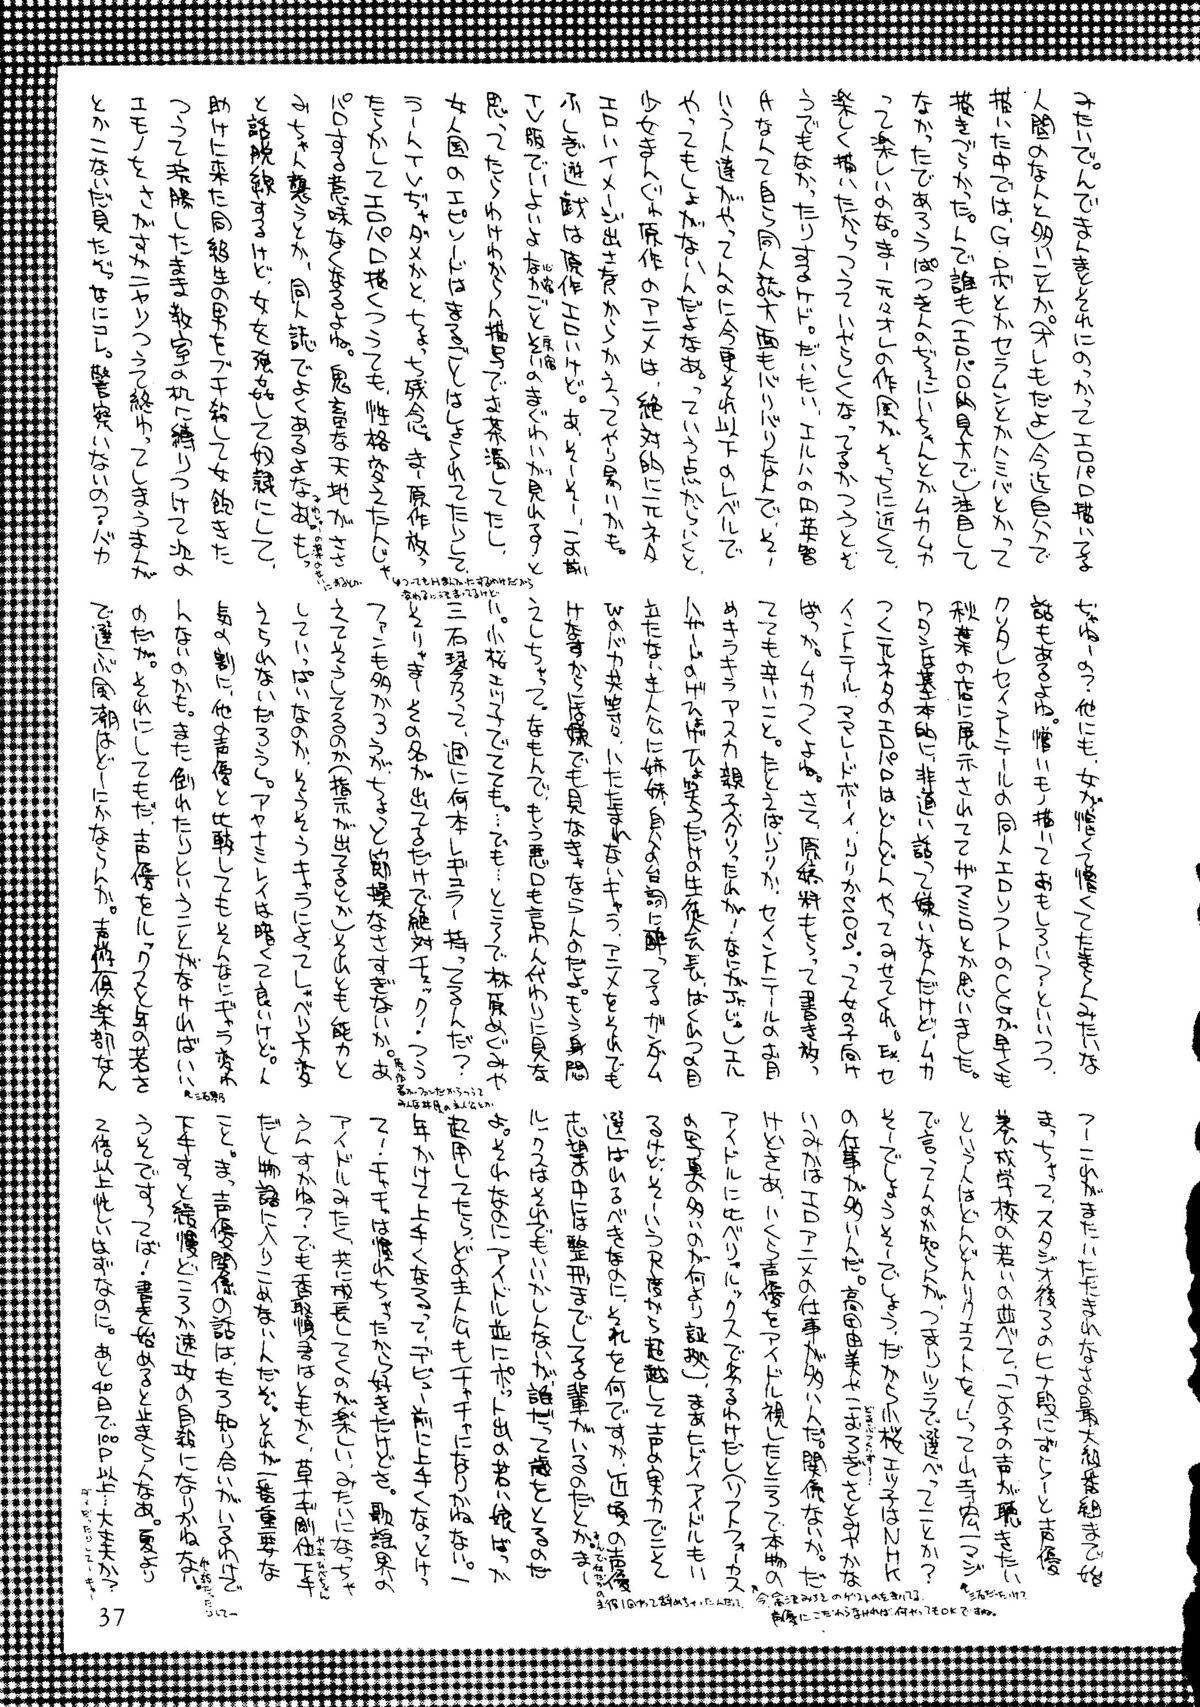 みたいで。んでまんまとそれにのっかってエロパロ描いてる
人間のなんと多いことか。(オレもだよ)今迄自分で
描いた中では、Gロボとかセラムンとかハミパとかって
描きづらかった。んで誰も(エロパロ的見方で)注目して
なかったであろうぱっきんのぢぇにいちゃんとかムカムカ
って楽しいのな。ま一元々オレの作風がそっちに近くて、
楽しく描いたからっつっていやらしくなってるかっつうとそ
うでもなかったりするケド。だいたい、エルハの田英智
いう人達がやってんのに今更それ以下のレベルで
やってもしょがないんだよなあ。っていう点からいくと、
少女まんが原作のアニメは、絶対的に元ネタ
エロいイメージ出さないからかえってやり易いかも。
ふしぎ遊戯は原作エロいけど。あ、そーそー、この前
TV版でいよいよなかごとそいのまぐわいが見れる!と
思ってたらわけわからん描写でお茶濁してたし、
女人国のエピソードはまるごとはしょられてたらして、
ラートTVぢゃダメかと、ちょっち残念。まー原作放っ
たらかしてエロパロ描くっつうても、性格変えたんじゃ
パロする意味なくなるよね。鬼畜な天地がささ
みちゃん襲うとか、同人誌でよくあるよなあ。もっ
と話脱線するけど、女女強姦して奴隷にして、
助けに来た同級生の男をブチ殺して女飽きた
っつうて浣腸したまま教室の机に縛りつけて次の
エモノをさがすかニヤリっつうて終わってしまうまんが
とかこないだ見たぞ。なにコレ。警察いないの?バカ
ぢゃねーの?他にも、女が憎くて憎くてたまらんみたいな
話もあるよね。憎いモノ描いておもしろい?といいつつ、
クリタレセイントテールの同人エロソフトのCGが早くも
秋葉の店に展示されててザマミロとか思いました。
ワタシは基本的に非道い話って嫌いなんだけど、ムカ
つく元ネタのエロパロはどんどんやってみせてくれ。Ex.セ
イントテール、ママレードボーイ、りりかSOS。って女の子向け
ばっか。ムカつくよね。さて、原稿料もらって書き放っ
てても辛いこと。たとえばりりか、セイントテールのお目
めキラキラアスカ親子ベタリったれが!なにがぷじゃ!エル
ハザードのげひょげひょ笑うだけの生徒会長、ばくれつの目
立たない主人公に姉妹、自分の台詞に酔ってるガンダム
けなすからには嫌でも見なきゃならんのだよ。もう身悶
えしちゃって。なもんで、もう悪口も言わん代わりに見な
い。小桜エツ子でてても。…でも…ところで林原めぐみや
三石琴乃って、週に何本レギュラー持ってるんだ?
とりまーその名が出てるだけで絶対チェック!つう
ファンも多かろうが、ちょっと節操なさすぎないか。あ
えてそうしてるのか(指示が出てるとか)それとも能力と
していっぱいなのか、そうそうキャラによってしゃべり方変
えられないだろうし。アヤナミレイは暗くて良いけど。人
気の割に、他の声優と比較してもそんなにギャラ変わ
んないのかも。また倒れたりということがなければいい
のだが。それにしてもだ、声優をルックスと年の若さ
で選ぶ風潮はどーにかならんか。声優倶楽部なん
つーこれがまたいたたまれなさの最大級番組まで始
まっちゃって、スタジオ後ろのヒナ段にずらーと声優
養成学校の若いの並べて、「この子の声が聴きたい
という人はどんどんリクエストを!」って山寺宏一マジ
で言ってんのか知らんが、つまりツラで選べってことか?
そーでしょうそーでしょう、だから小桜エツ子はNHK
の仕事が多いんだ。高田由美やこおろぎさとみやかな
いみかはエロアニメの仕事が多いんだ。関係ないか。だ
けどさあ、いくら声優をアイドル視したところで本物の
アイドルに比べりゃルックスで劣るわけだし(ソフトフォーカス
の写真の多いのが何より証拠)、まあヒドイアイドルもい
るけど、そーいう尺度から超越して声の実力でこそ
選ばれるべきなのに、それを何ですか、近頃の声優
志望の中には整形までしてる輩がいるのだとか。まー
ルックスはそれでもいいかしんないが、誰だって歳をとるのだ
よ。それなのにアイドル並にポット出の若い娘ばっか
起用してたら、どの主人公もチャチャになりかねない。一
年かけて上手くなるって、デビュー前に上手くなっとけっ
て!チャチャは慣れちゃったから好きだけどさ。歌謡界の
アイドルみたく、共に成長してくのが楽しい、みたいになっちゃ
うんすかね?でも香取慎吾はともかく、草ナギ剛他下手
だと物語に入りこめないんだぞ。それが一番重要な
こと。まっ、声優関係の話は、もろ知り合いがいるわけで
下手すっと緩慢どころか速攻の自殺になりかねな
うそですってば!書き始めると止まらんなあ。夏より
2倍以上忙しいはずなのに。あと4日で100P以上…大丈夫か?
37